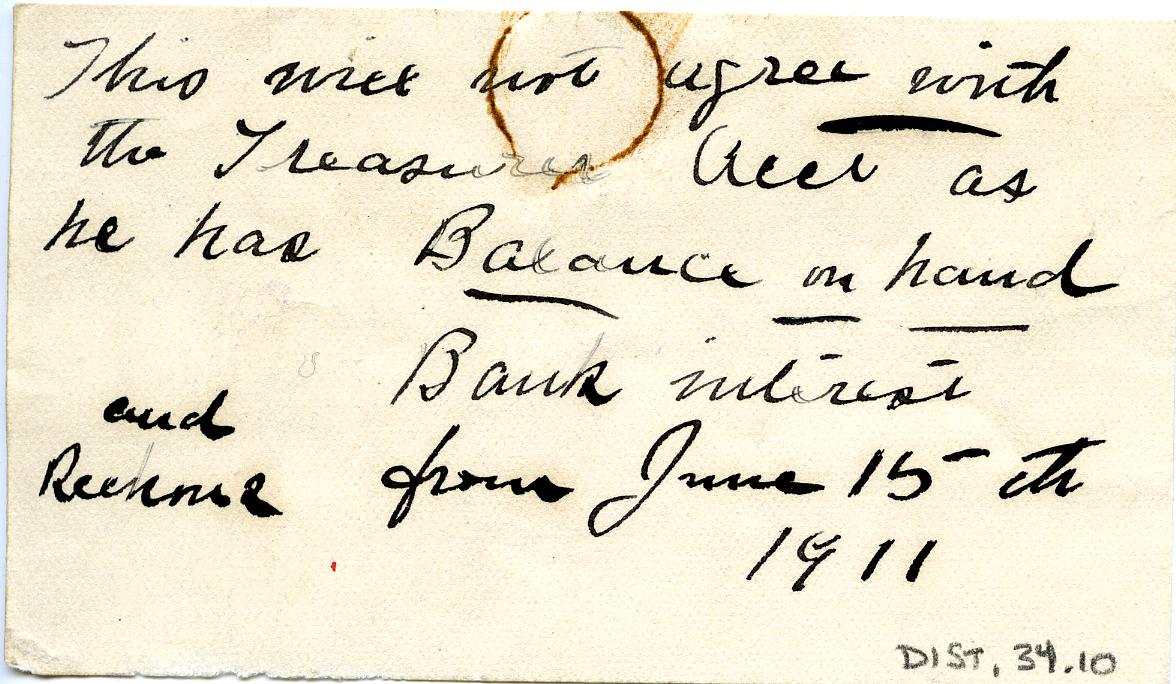 This will not agree with
the Treasurer Acct as
he has Balance on hand
Bank interest
and
Reckons from June 15th
1911
DIST. 34.10